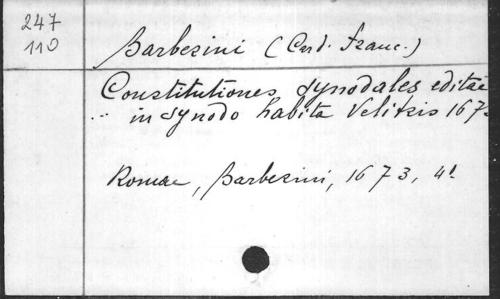 247
110
Barberini (Card. Franc.)
Constitutiones synodales editae
in synodo habita Velitris 167
Romae, Barberini, 1673, 4°